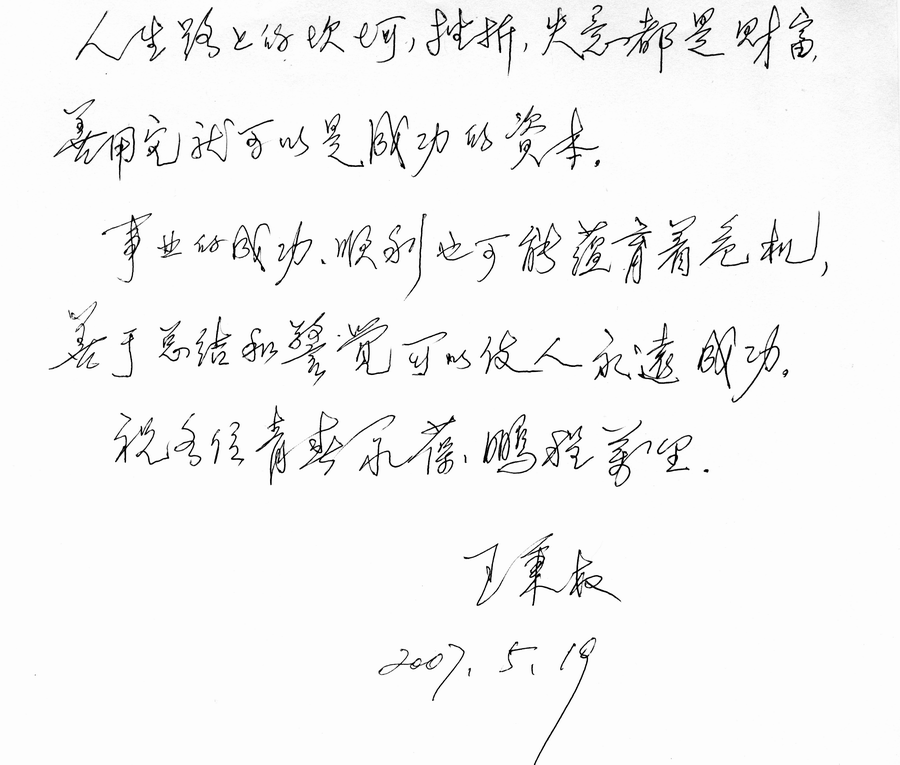 人生路上的坎坷,挫折,失意都是财富,
善用它就可以是成功的資本。
事业的成功、顺利也可能蕴育着危机,
善于总结和警觉可以使人永遠成功。
祝各位青春永葆、鹏程萬里.
王秉
2007. 5. 19